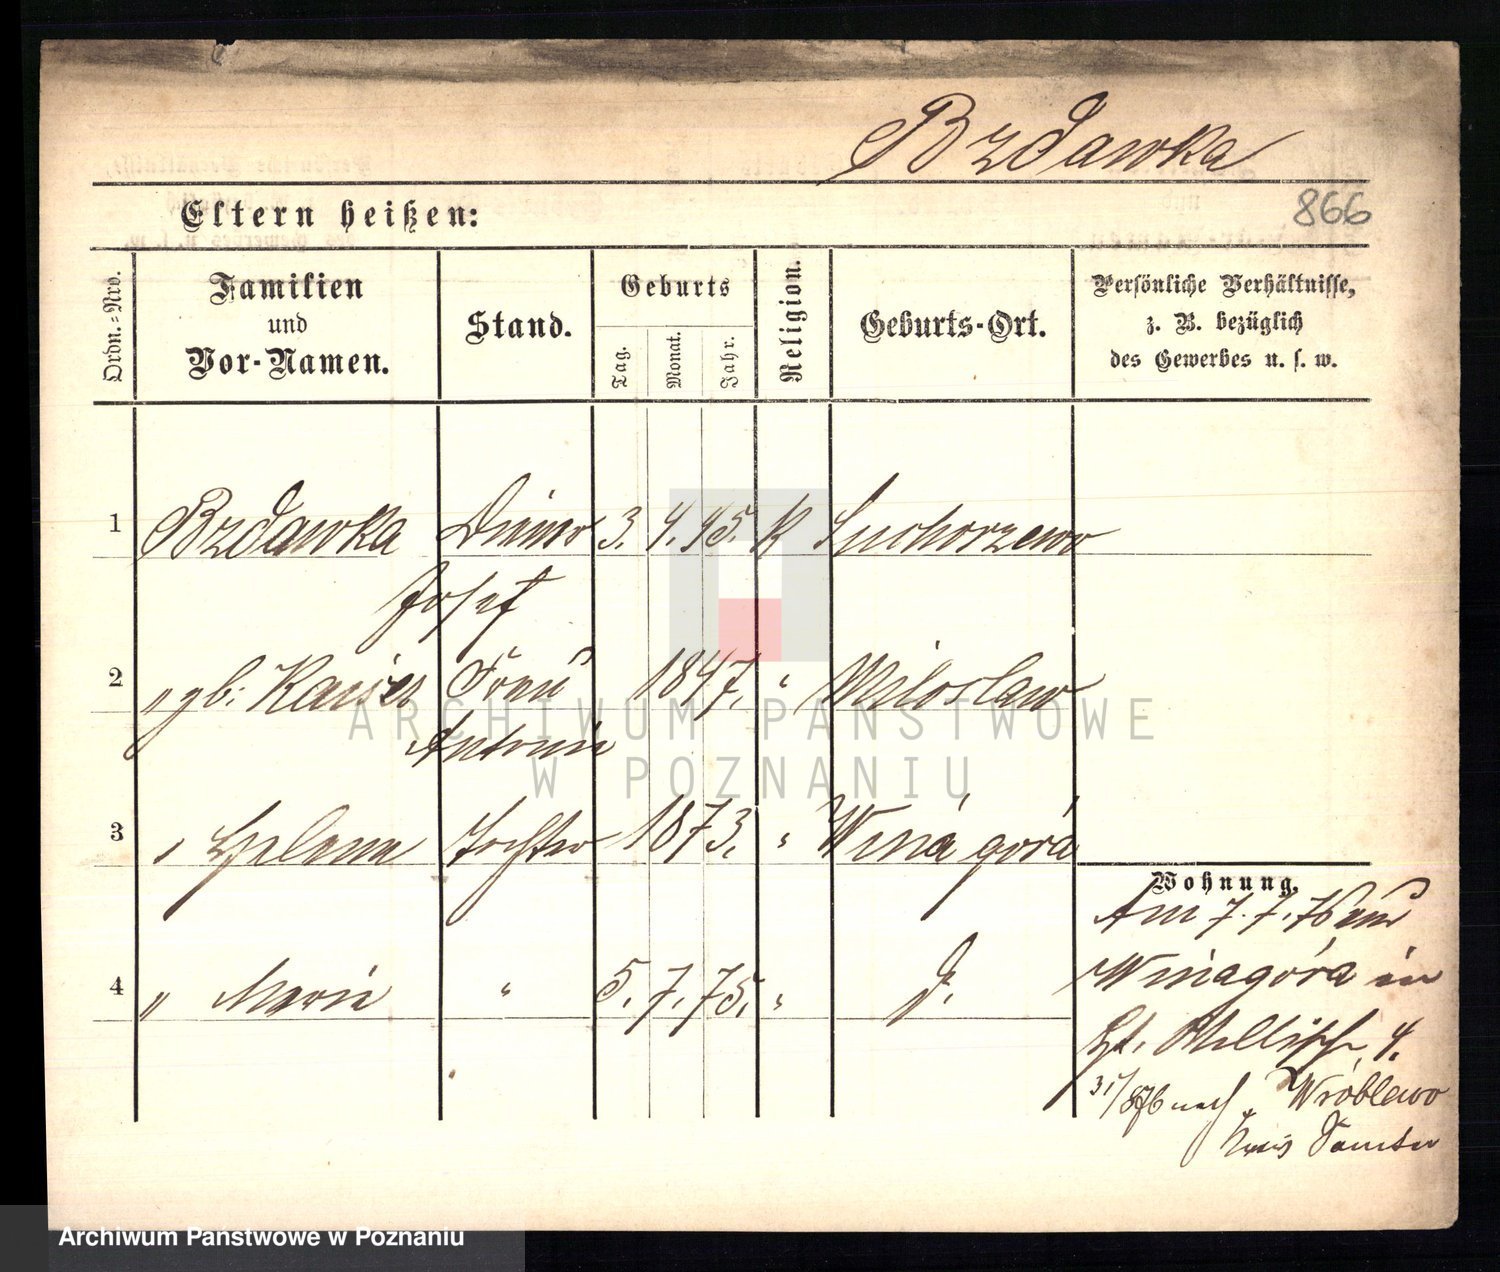 Bzdawka
Eltern heißen:
866
Ordn.-Nro.
Familien
und
Vor-Namen.
Stand.
Geburts
Tag.
Monat.
Jahr.
Religion.
Geburts-Ort.
Persönliche Verhältnisse,
z. B. bezüglich
des Gewerbes u. s. w.
1 Bzdawka Diener 3. 4. 45. K Suchorzewo
Josef
2 " gb: Kaiser Frau 1847. " Miloslaw
Antonie
3 " Helena Tochter 1873. " Winá górá
4 " Marie " 5. 7. 75. " d.
Wohnung.
Am 7. 7. 76 aus
Winagóra in
4.
31/8 76 nach Wróblewo
Kreis Samter
ARCHIWUM PAŃSTWOWE
W POZNANIU
Archiwum Państwowe w Poznaniu